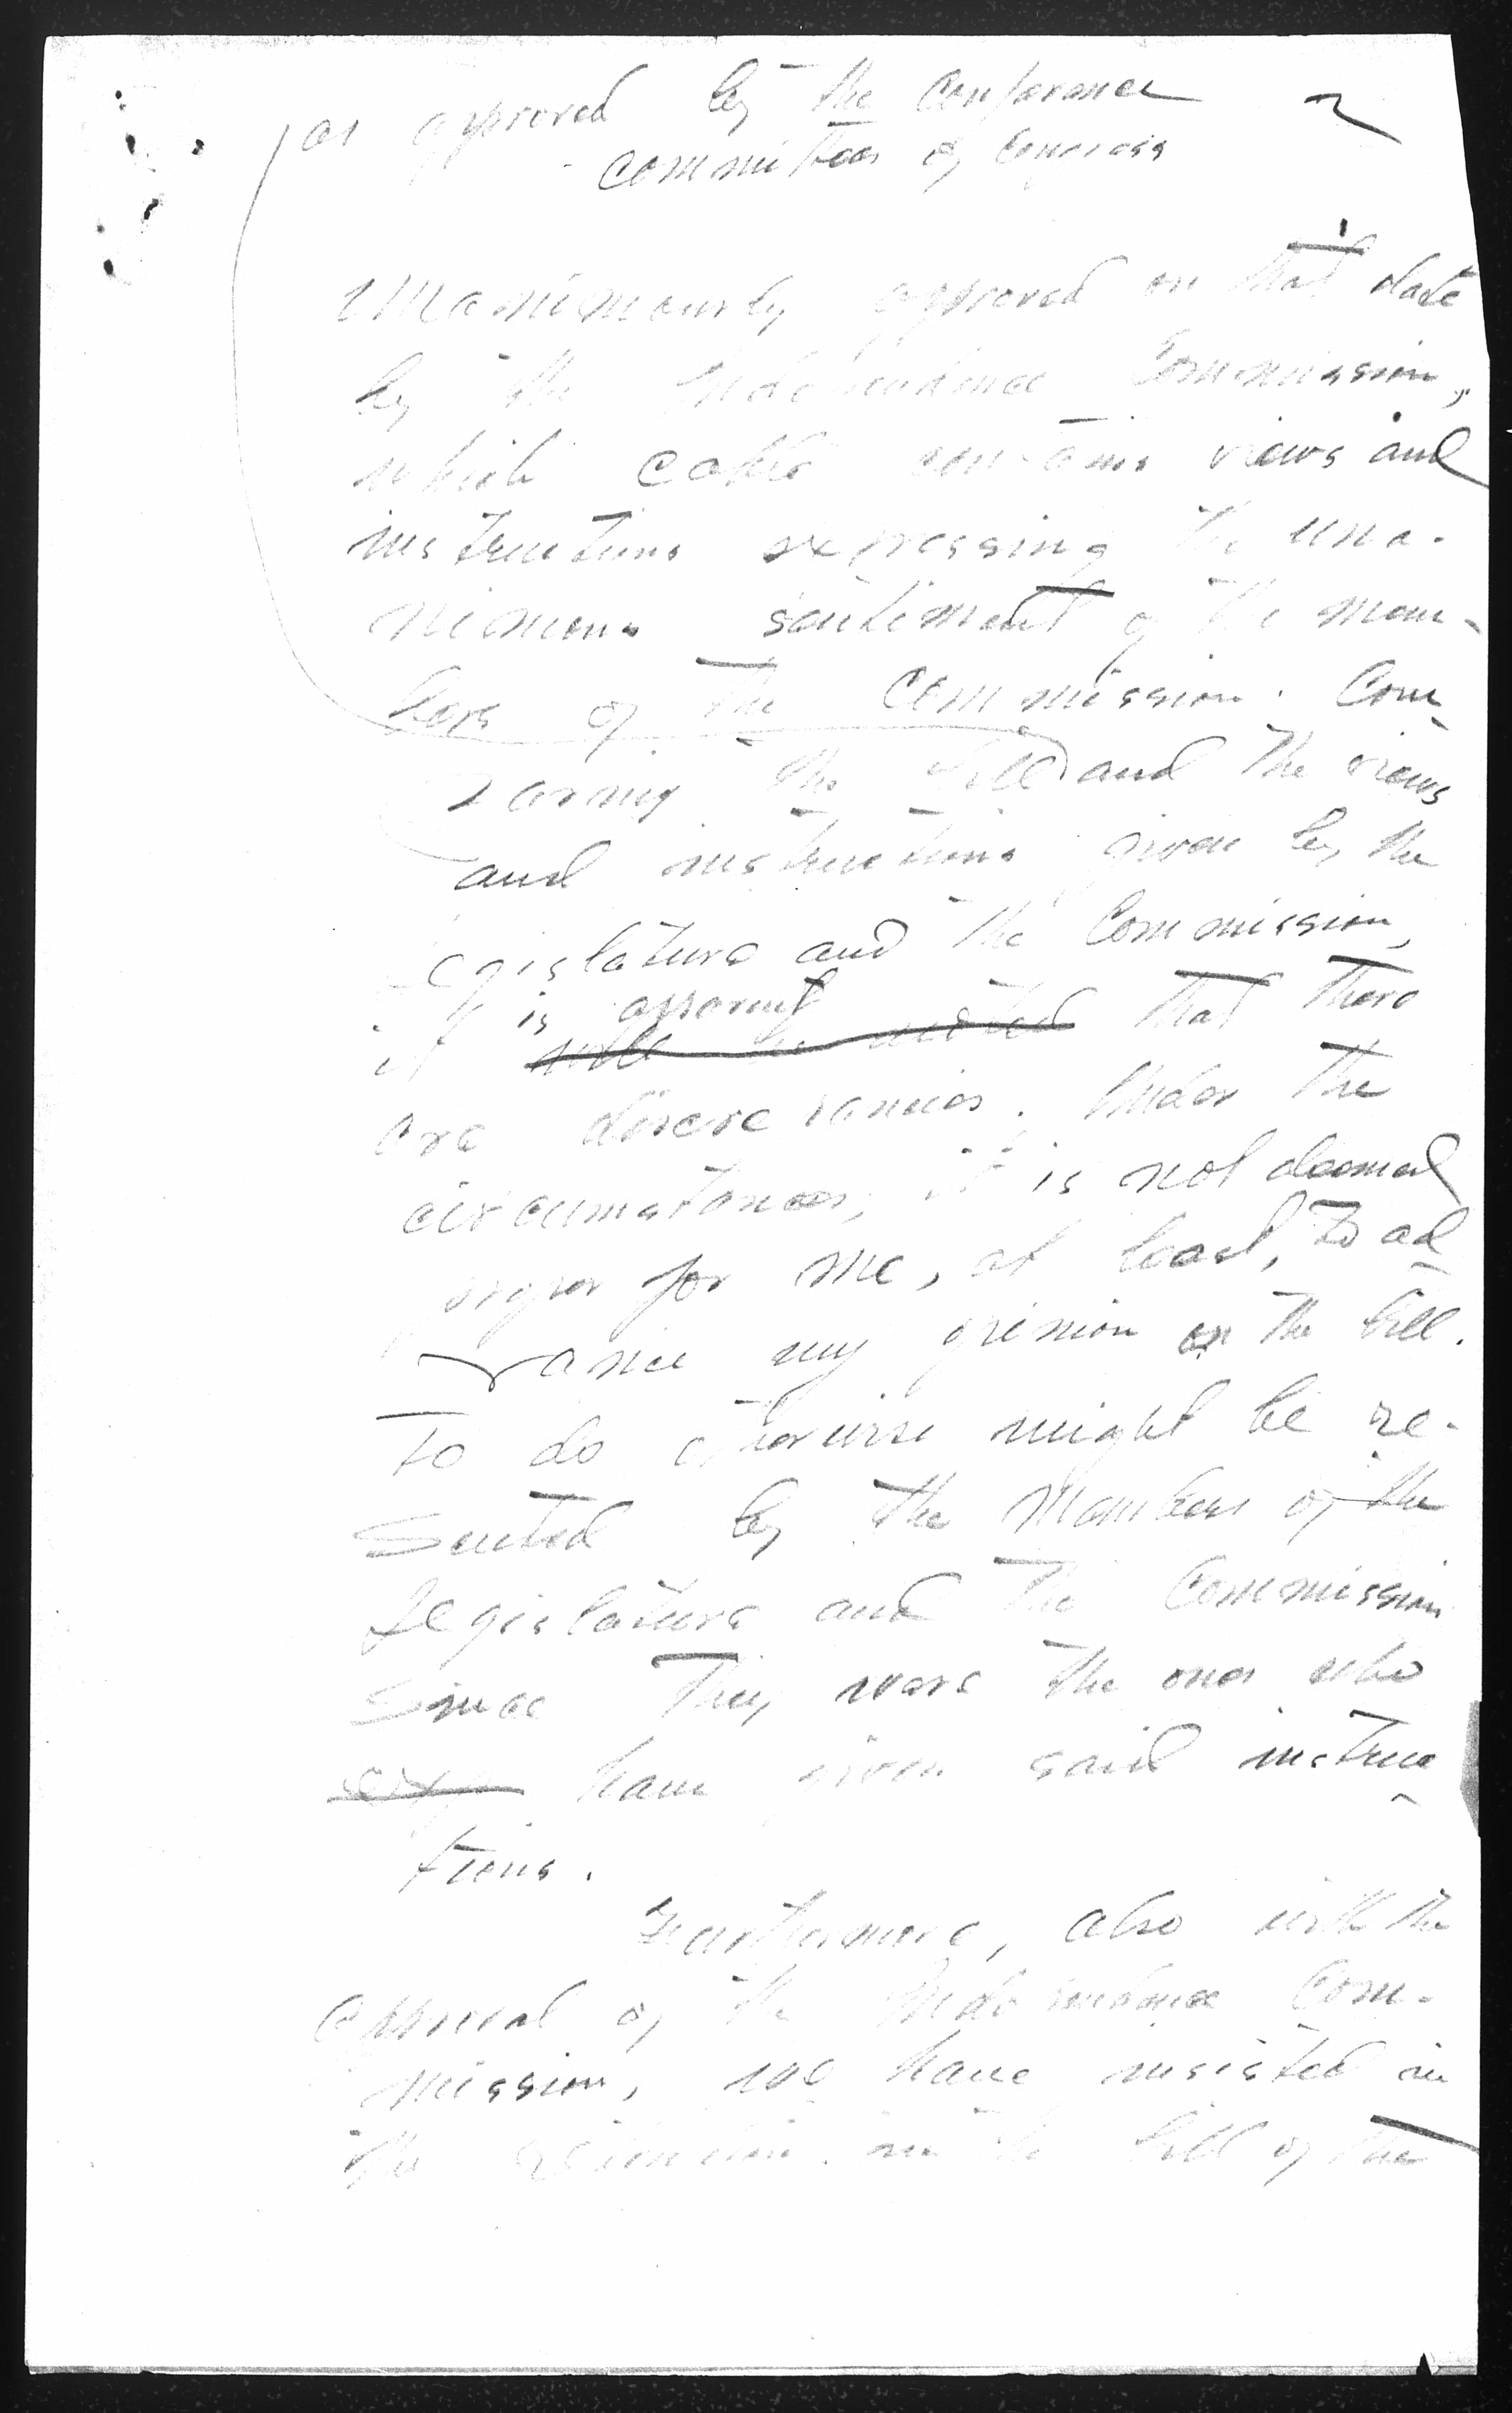 as approved by the Conference
committees of Congress
unanimously approved on that date
by the Independence Commission,
which cable contains views and
instructions expressing the una-
nimous sentiment of the mem-
bers of the Commission. Com-
paring the bill and the views
and instructions given by the
Legislature and the Commission,
is apparent
it will be noted that there
are discrepancies. Under the
circumstances, it is not deemed
proper for me, at least, to ad-
vance my opinion on the bill.
To do otherwise might be re-
sented by the Members of the
Legislature and the Commission
since they were the ones who
have given said instruc-
tions.
Furthermore, also with the
approval of the Independence Com-
mission, we have insisted in
the retention in the bill of the